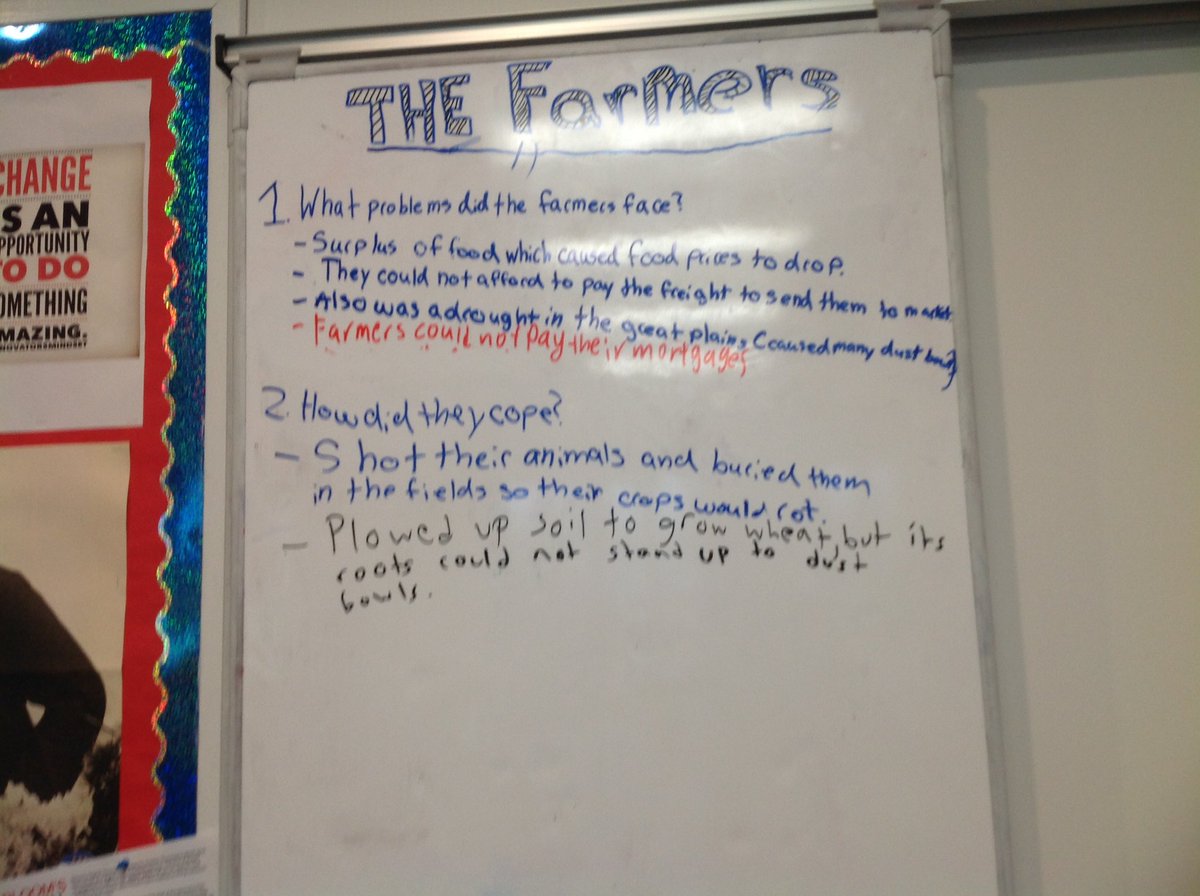 THE Farmers
1. What problems did the farmers face?
- Surplus of food which caused food prices to drop.
- They could not afford to pay the freight to send them to market.
- Also was a drought in the great plains (caused many dust
- Farmers could not pay their mortgages
2. How did they cope?
- Shot their animals and buried them
in the fields so their crops would rot.
- Plowed up soil to grow wheat, but its
roots could not stand up to dust
bowls.
CHANGE
IS AN
OPPORTUNITY
TO DO
SOMETHING
AMAZING.